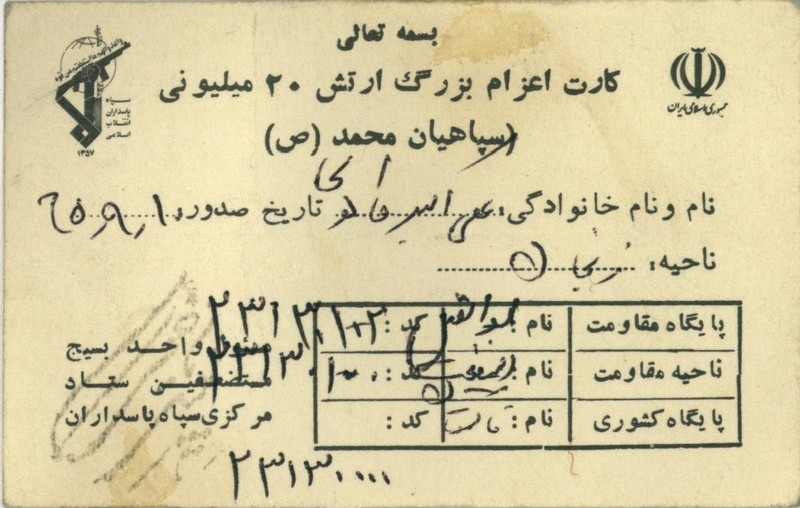 بسمه تعالی
کارت اعزام بزرگ ارتش ۲۰ میلیونی
(سپاهیان محمد (ص
سپاه
پاسداران
انقلاب
اسلامی
۱۳۵۷
جمهوری اسلامی ایران
نام و نام خانوادگی: تاریخ صدور: ۶۵٫۹٫۱
ناحیه:
پایگاه مقاومت نام: ابوالفضل کد: ۲۳۱۳۰۱۰۲
ناحیه مقاومت نام: کد:
پایگاه کشوری نام: کد:
مسئول واحد بسیج
مستضعفین ستاد
مرکزی سپاه پاسداران
۲۳۱۳۰۰۰۰